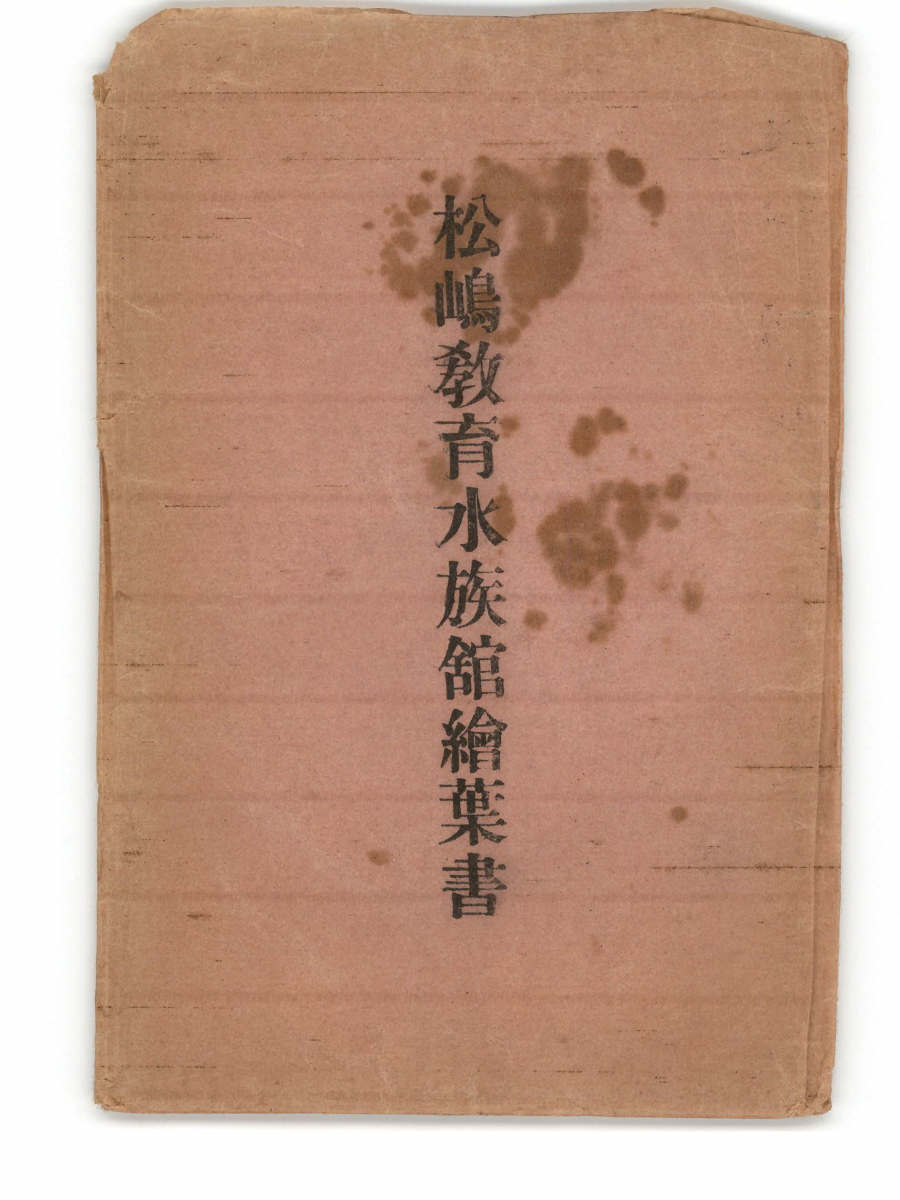 松嶋敎育水族舘繪葉書